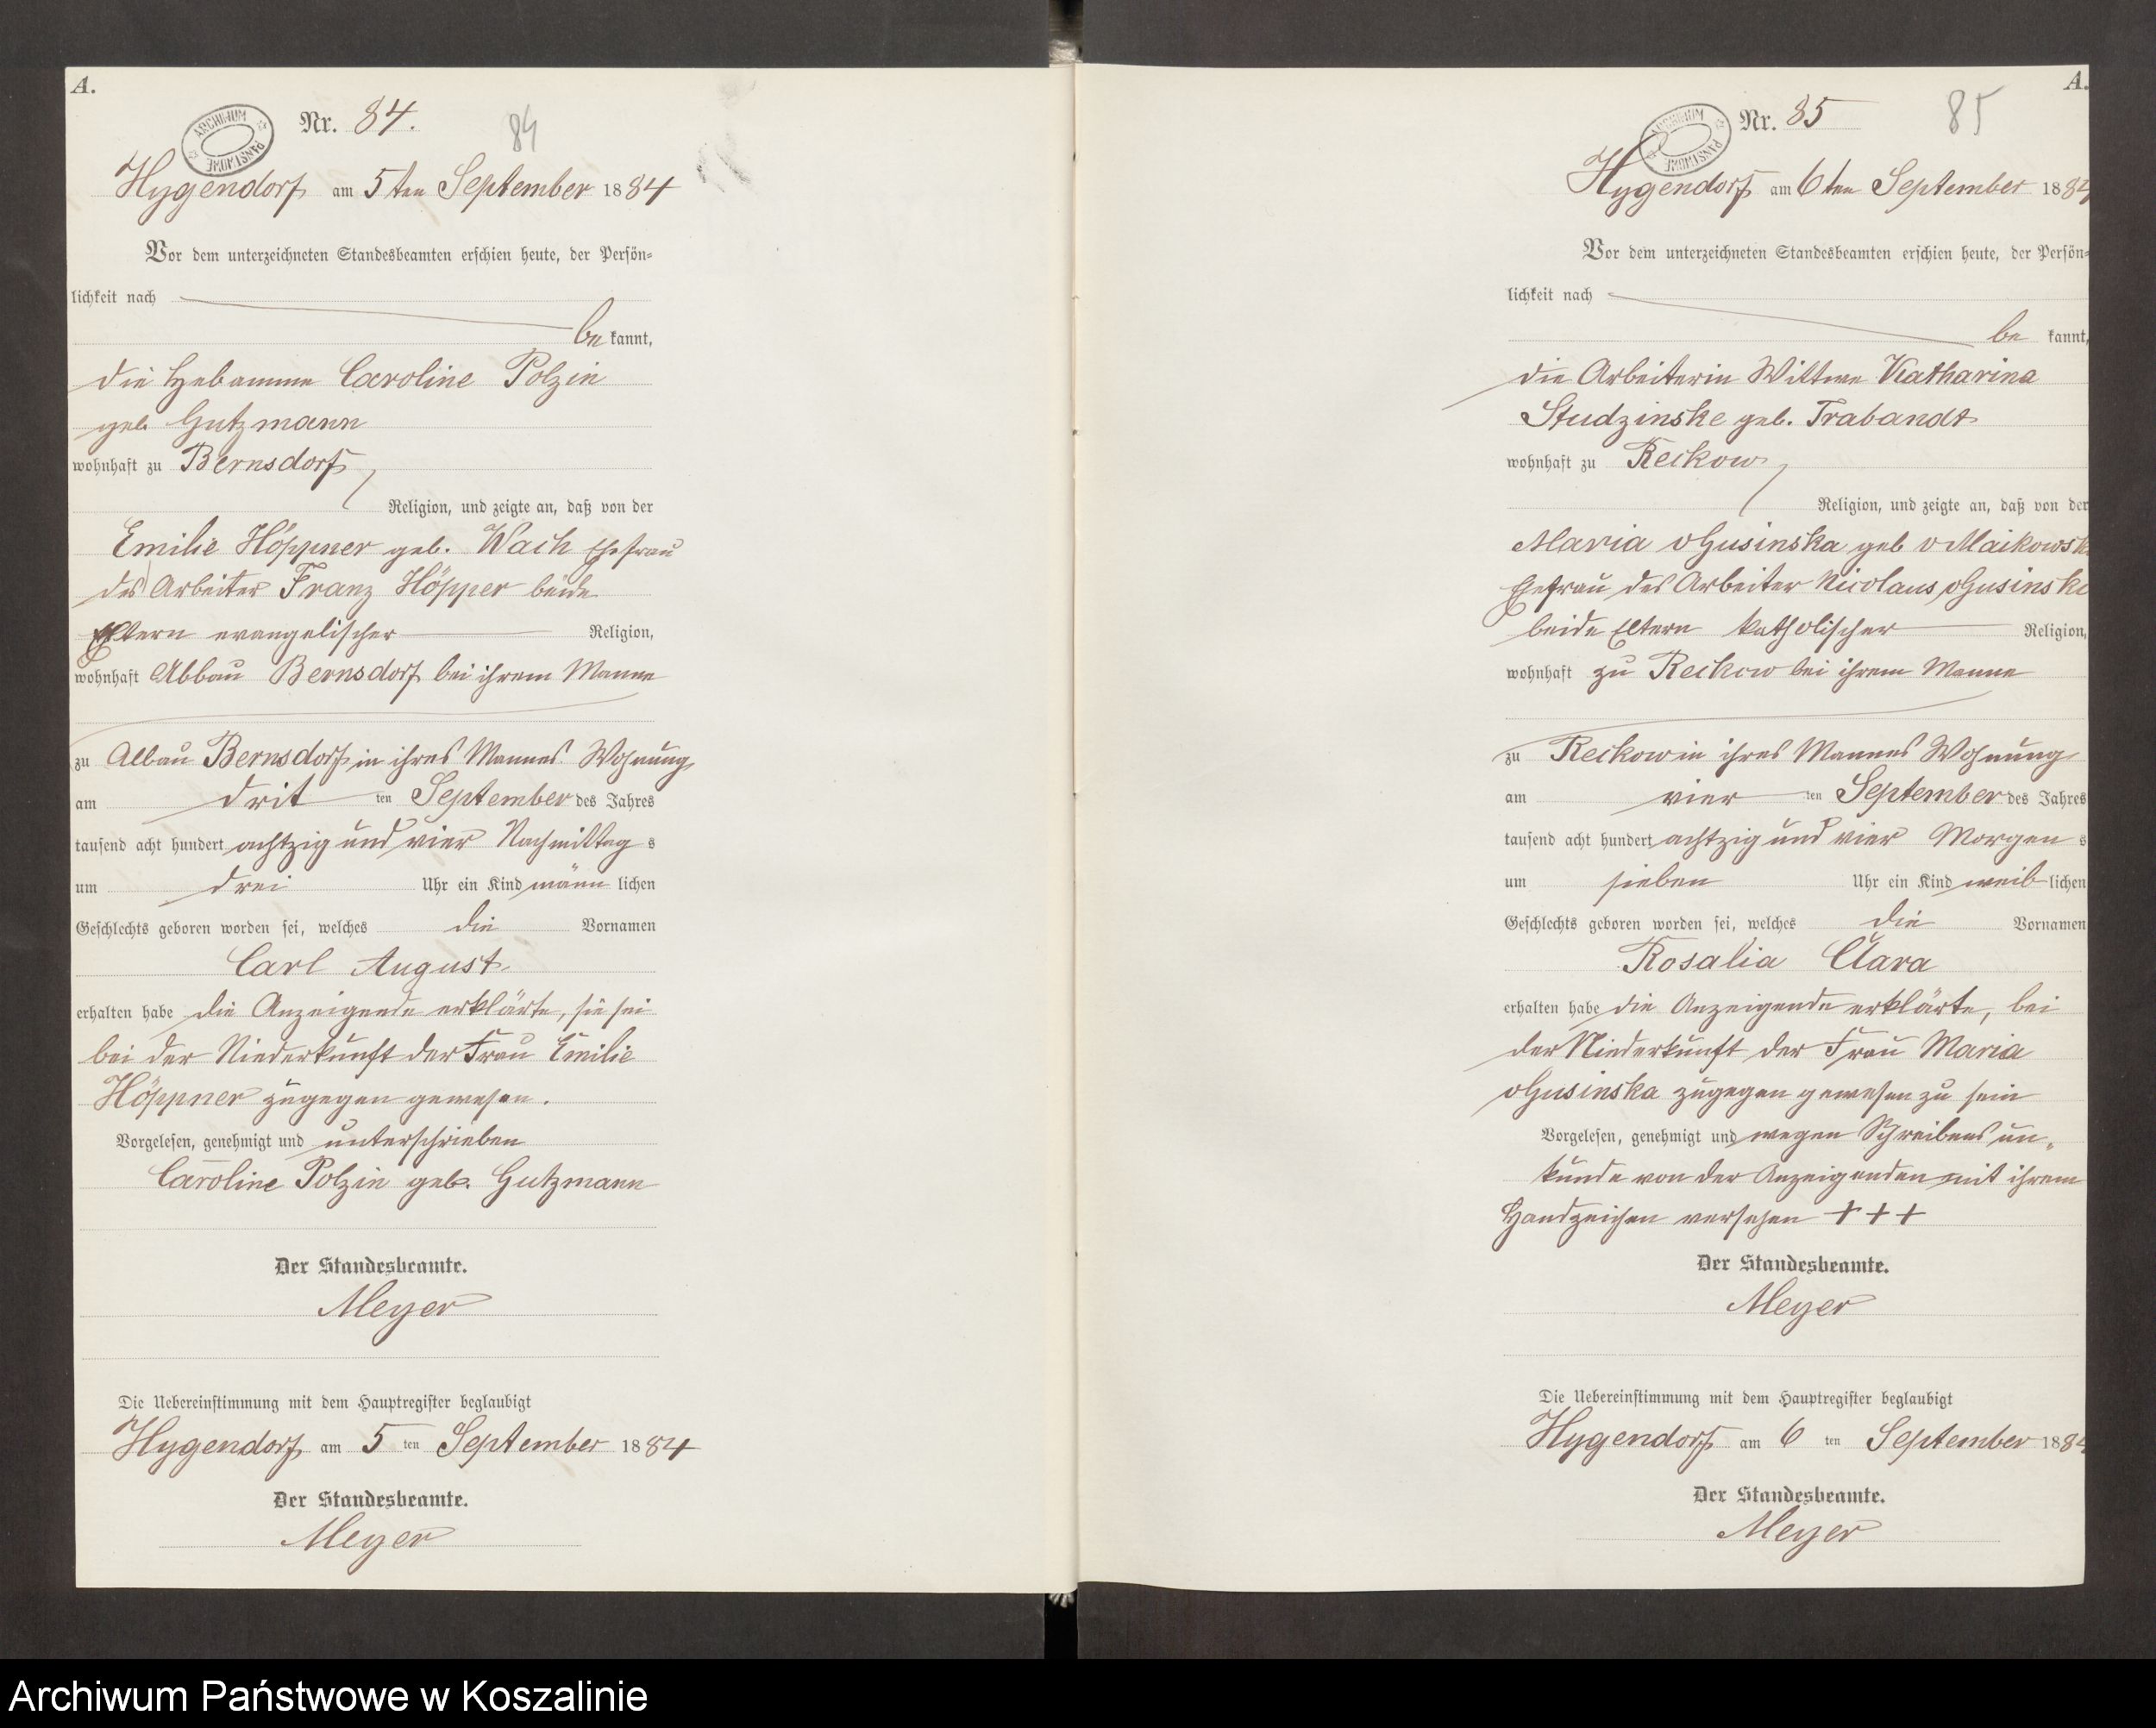 A.
ARCHIWUM PAŃSTWOWE
Nr. 84.
84
Hygendorf am 5ten September 1884
Vor dem unterzeichneten Standesbeamten erschien heute, der Persön-
lichkeit nach
be kannt,
die Hebamme Caroline Polzin
geb Gutzmann
wohnhaft zu Bernsdorf
Religion, und zeigte an, daß von der
Emilie Höppner geb. Wach Ehefrau
des Arbeiter Franz Höpper beide
Eltern evangelischer Religion,
wohnhaft Abbau Bernsdorf bei ihrem Manne
zu Abbau Bernsdorf in ihres Mannes Wohnung
am drit ten September des Jahres
tausend acht hundert achtzig und vier Nachmittag s
um drei Uhr ein Kind männ lichen
Geschlechts geboren worden sei, welches die Vornamen
Carl August
erhalten habe die Anzeigende erklärte, sie sei
bei der Niederkunft der Frau Emilie
Höppner zugegen gewesen.
Vorgelesen, genehmigt und unterschrieben
Caroline Polzin geb. Gutzmann
Der Standesbeamte.
Meyer
Die Uebereinstimmung mit dem Hauptregister beglaubigt
Hygendorf am 5 ten September 1884
Der Standesbeamte.
Meyer
A.
ARCHIWUM PAŃSTWOWE
Nr. 85
85
Hygendorf am 6ten September 1884
Vor dem unterzeichneten Standesbeamten erschien heute, der Persön-
lichkeit nach
be kannt,
die Arbeiterin Wittwe Katharina
Studzinske geb. Trabandt
wohnhaft zu Reckow
Religion, und zeigte an, daß von der
Maria vGusinska geb v Maikowsk
Ehefrau des Arbeiter Nicolaus vGusinske
beide Eltern katholischer Religion,
wohnhaft zu Reckow bei ihrem Manne
zu Reckow in ihres Mannes Wohnung
am vier ten September des Jahres
tausend acht hundert achtzig und vier Morgen s
um sieben Uhr ein Kind weib lichen
Geschlechts geboren worden sei, welches die Vornamen
Rosalia Clara
erhalten habe die Anzeigende erklärte, bei
der Niederkunft der Frau Maria
vGusinska zugegen gewesen zu sein
Vorgelesen, genehmigt und wegen Schreibens un-
kunde von der Anzeigenden mit ihrem
Handzeichen versehen + + +
Der Standesbeamte.
Meyer
Die Uebereinstimmung mit dem Hauptregister beglaubigt
Hygendorf am 6 ten September 1884
Der Standesbeamte.
Meyer
Archiwum Państwowe w Koszalinie